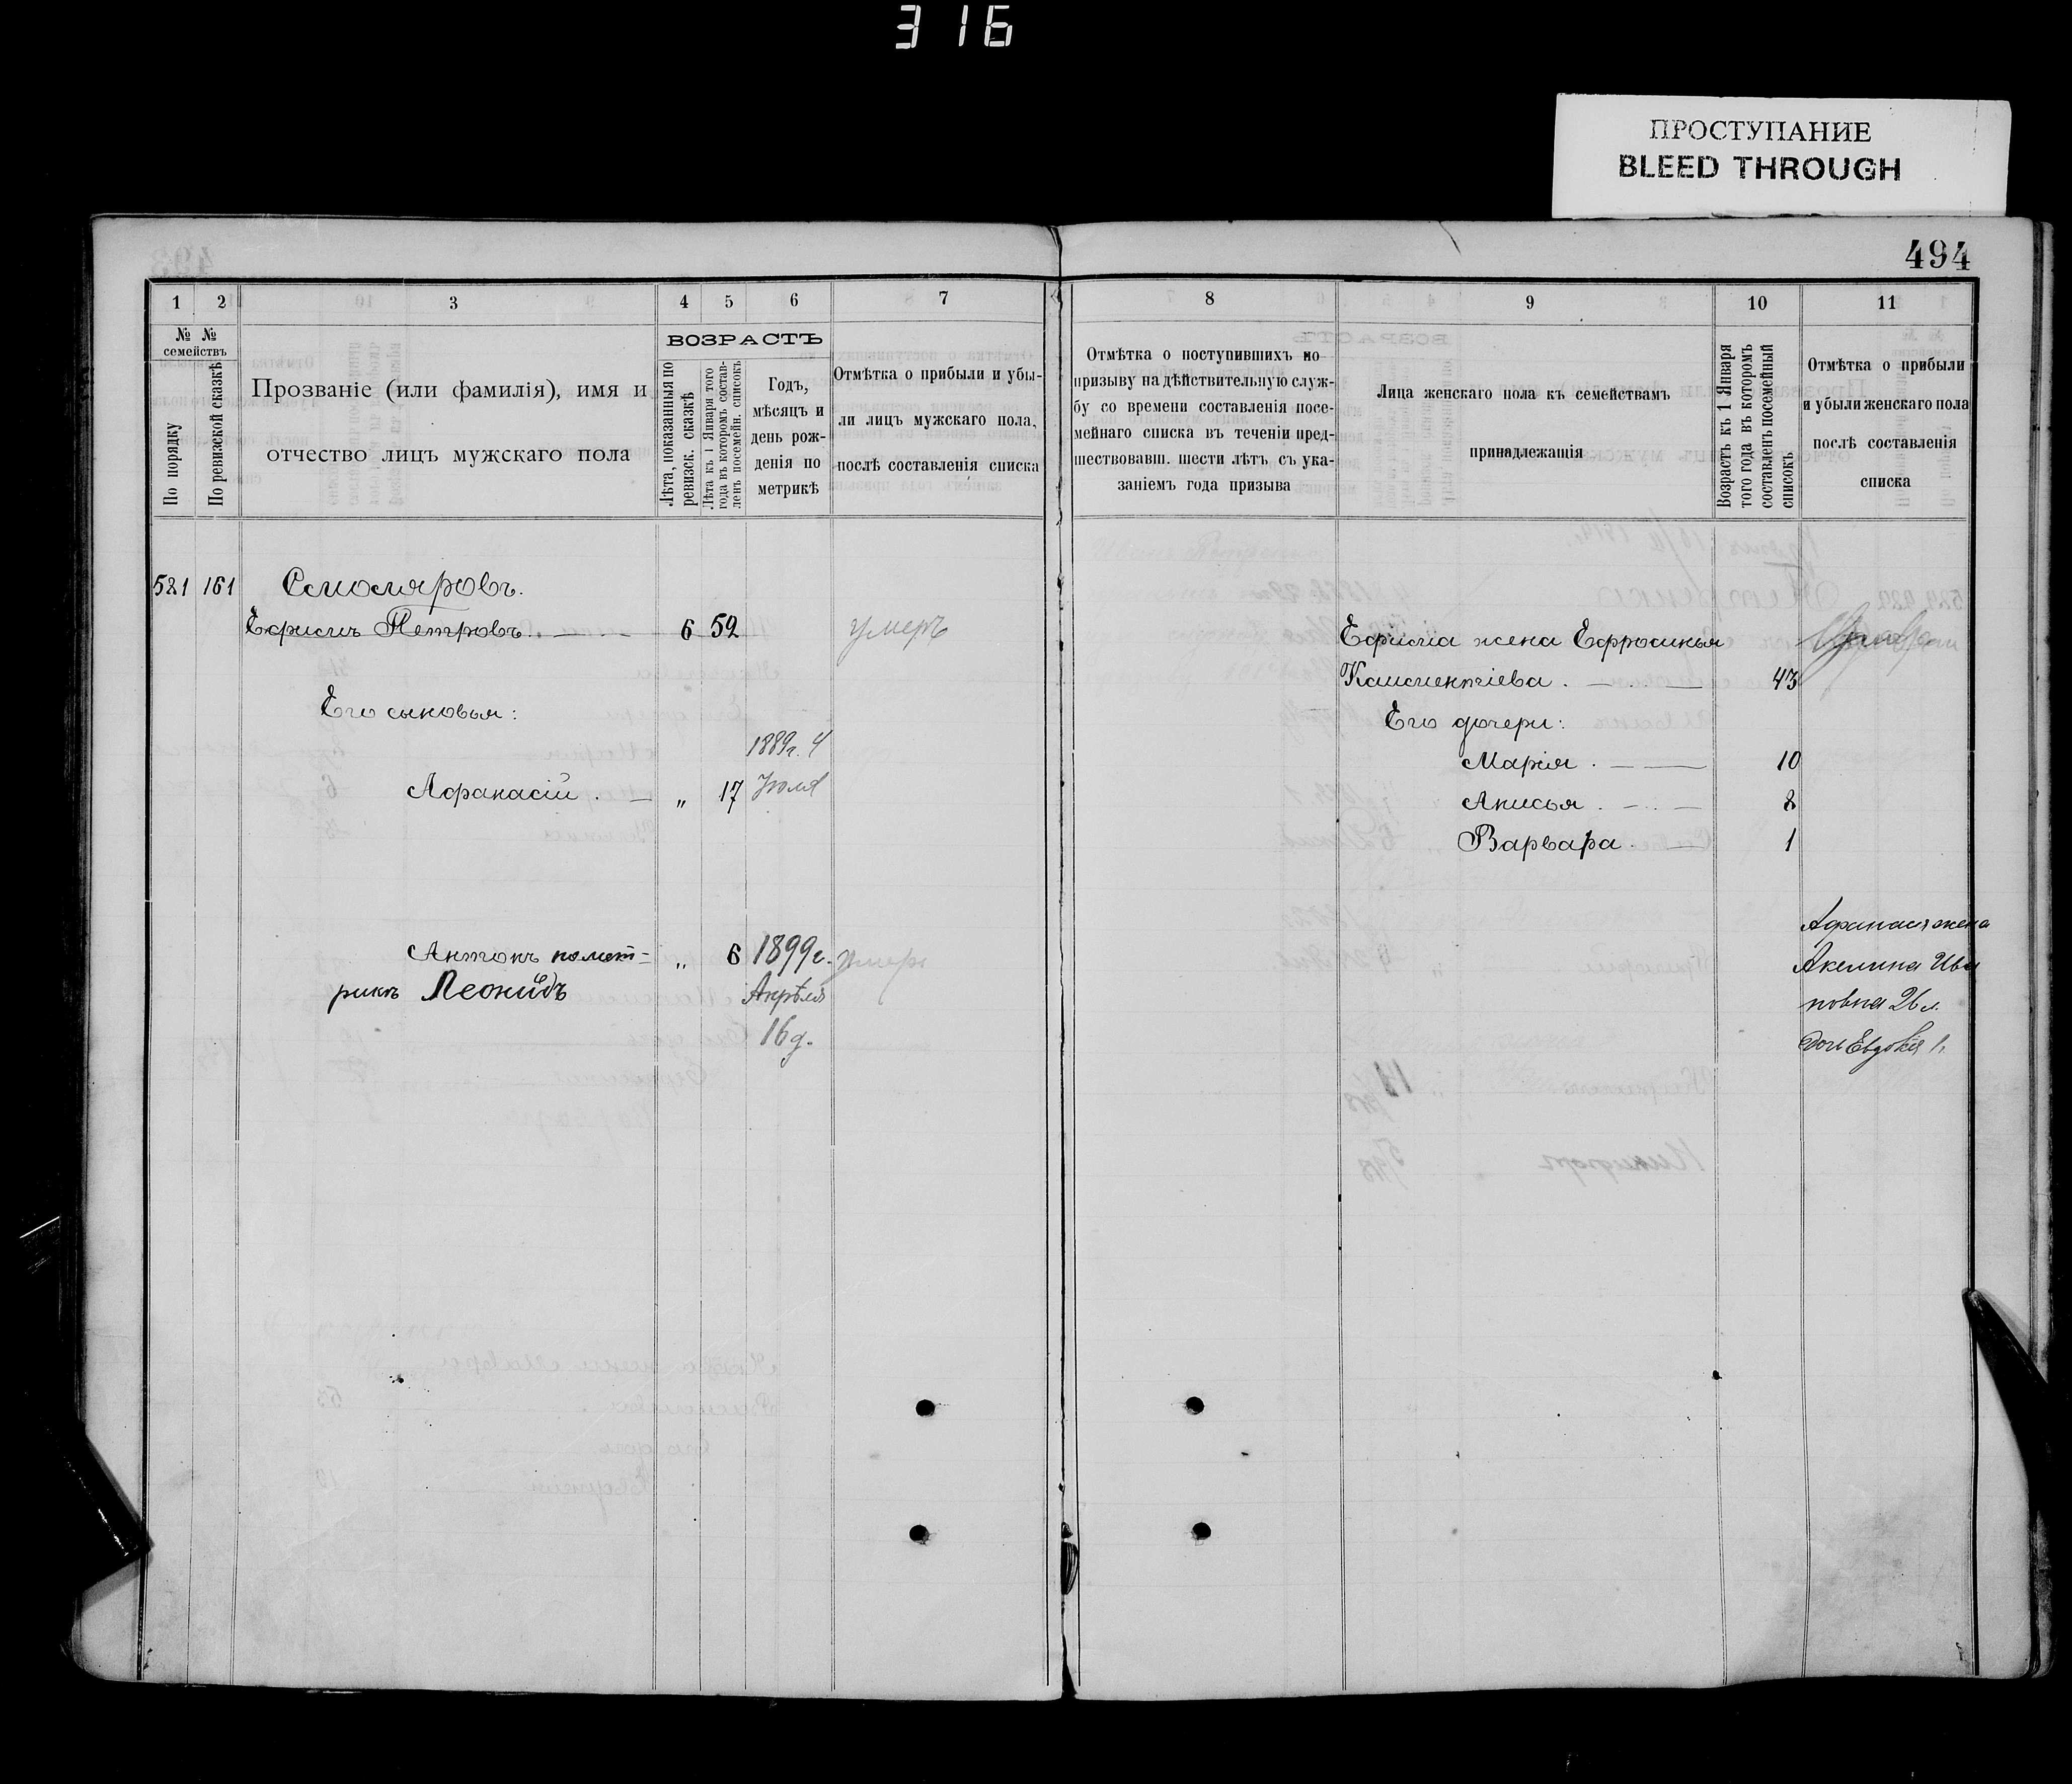 316
ПРОСТУПАНИЕ
BLEED THROUGH
494
1 2 3 4 5 6 7
№ № семействъ
По порядку
По ревизской сказкѣ
Прозваніе (или фамилія), имя и
отчество лицъ мужскаго пола
ВОЗРАСТЪ
Лѣта, показанныя по
ревизск. сказкѣ
Лѣта къ 1 Января того
года въ которомъ состав-
ленъ посемейн. списокъ
Годъ,
мѣсяцъ и
день рож-
денія по
метрикѣ
Отмѣтка о прибыли и убы-
ли лицъ мужскаго пола,
послѣ составленія списка
521 161 Смоляровъ.
Ефимъ Петровъ. 6 52 умеръ
Его сыновья:
1889г. 4
Афанасій . „ 17 Іюля
Антонъ по мет- „ 6 1899г. умеръ
рикѣ Леонидъ Апрѣля
16 д.
8 9 10 11
Отмѣтка о поступившихъ по
призыву на дѣйствительную служ-
бу со времени составленія посе-
мейнаго списка въ теченіи пред-
шествовавш. шести лѣтъ съ ука-
заніемъ года призыва
Лица женскаго пола къ семействамъ
принадлежащія
Возрастъ къ 1 Января
того года въ которомъ
составленъ посемейный
списокъ
Отмѣтка о прибыли
и убыли женскаго пола
послѣ составленія
списка
Ефима жена Ефросинья
Климентіева . 43
Его дочери:
Марія . 10
Анисья . 8
Варвара . 1
Афанасія жена
Акелина Ива
новна 26 л.
дочь Евдокія 1.